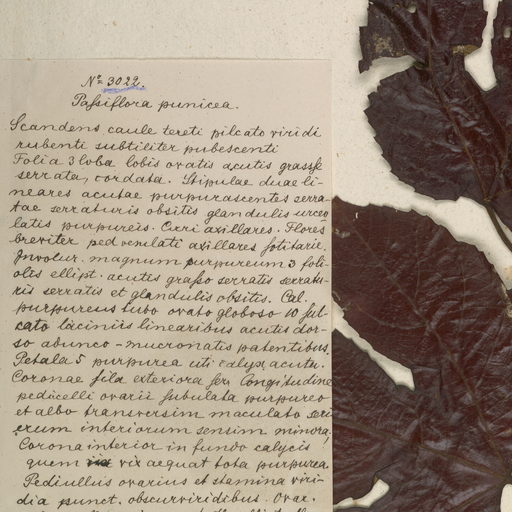 No 3022.
Passiflora punicea.
Scandens caule tereti pilcato viridi
rubenti subtiliter pubescenti
Folia 3 loba lobis ovatis acutis grosse
serrata, cordata. Stipulae duae li-
neares acutae purpurascentes serra-
tae serraturis obsitis glandulis urceo
latis purpureis. Cirri axillares. Flores
breviter pedunculati axillares solitarie.
Involucr. magnum purpureum 3 foli-
olis ellipt. acutis grosso serratis serratu-
ris serratis et glandulis obsitis. Cal.
purpureus tubo ovato globoso 10 sul-
cato laciniis linearibus acutis dor-
so abunco-mucronatis patentibus.
Petala 5 purpurea uti calyx acuta.
Coronae fila exteriora fere longitudine
pedicelli ovarii subulata purpureo
et albo transversim maculato seri
erum interiorum sensim minora,
Corona interior in fundo calycis
quem vix aequat tota purpurea.
Pediullus ovarius et stamina viri-
dia punct. obscurviridibus. Ovar.